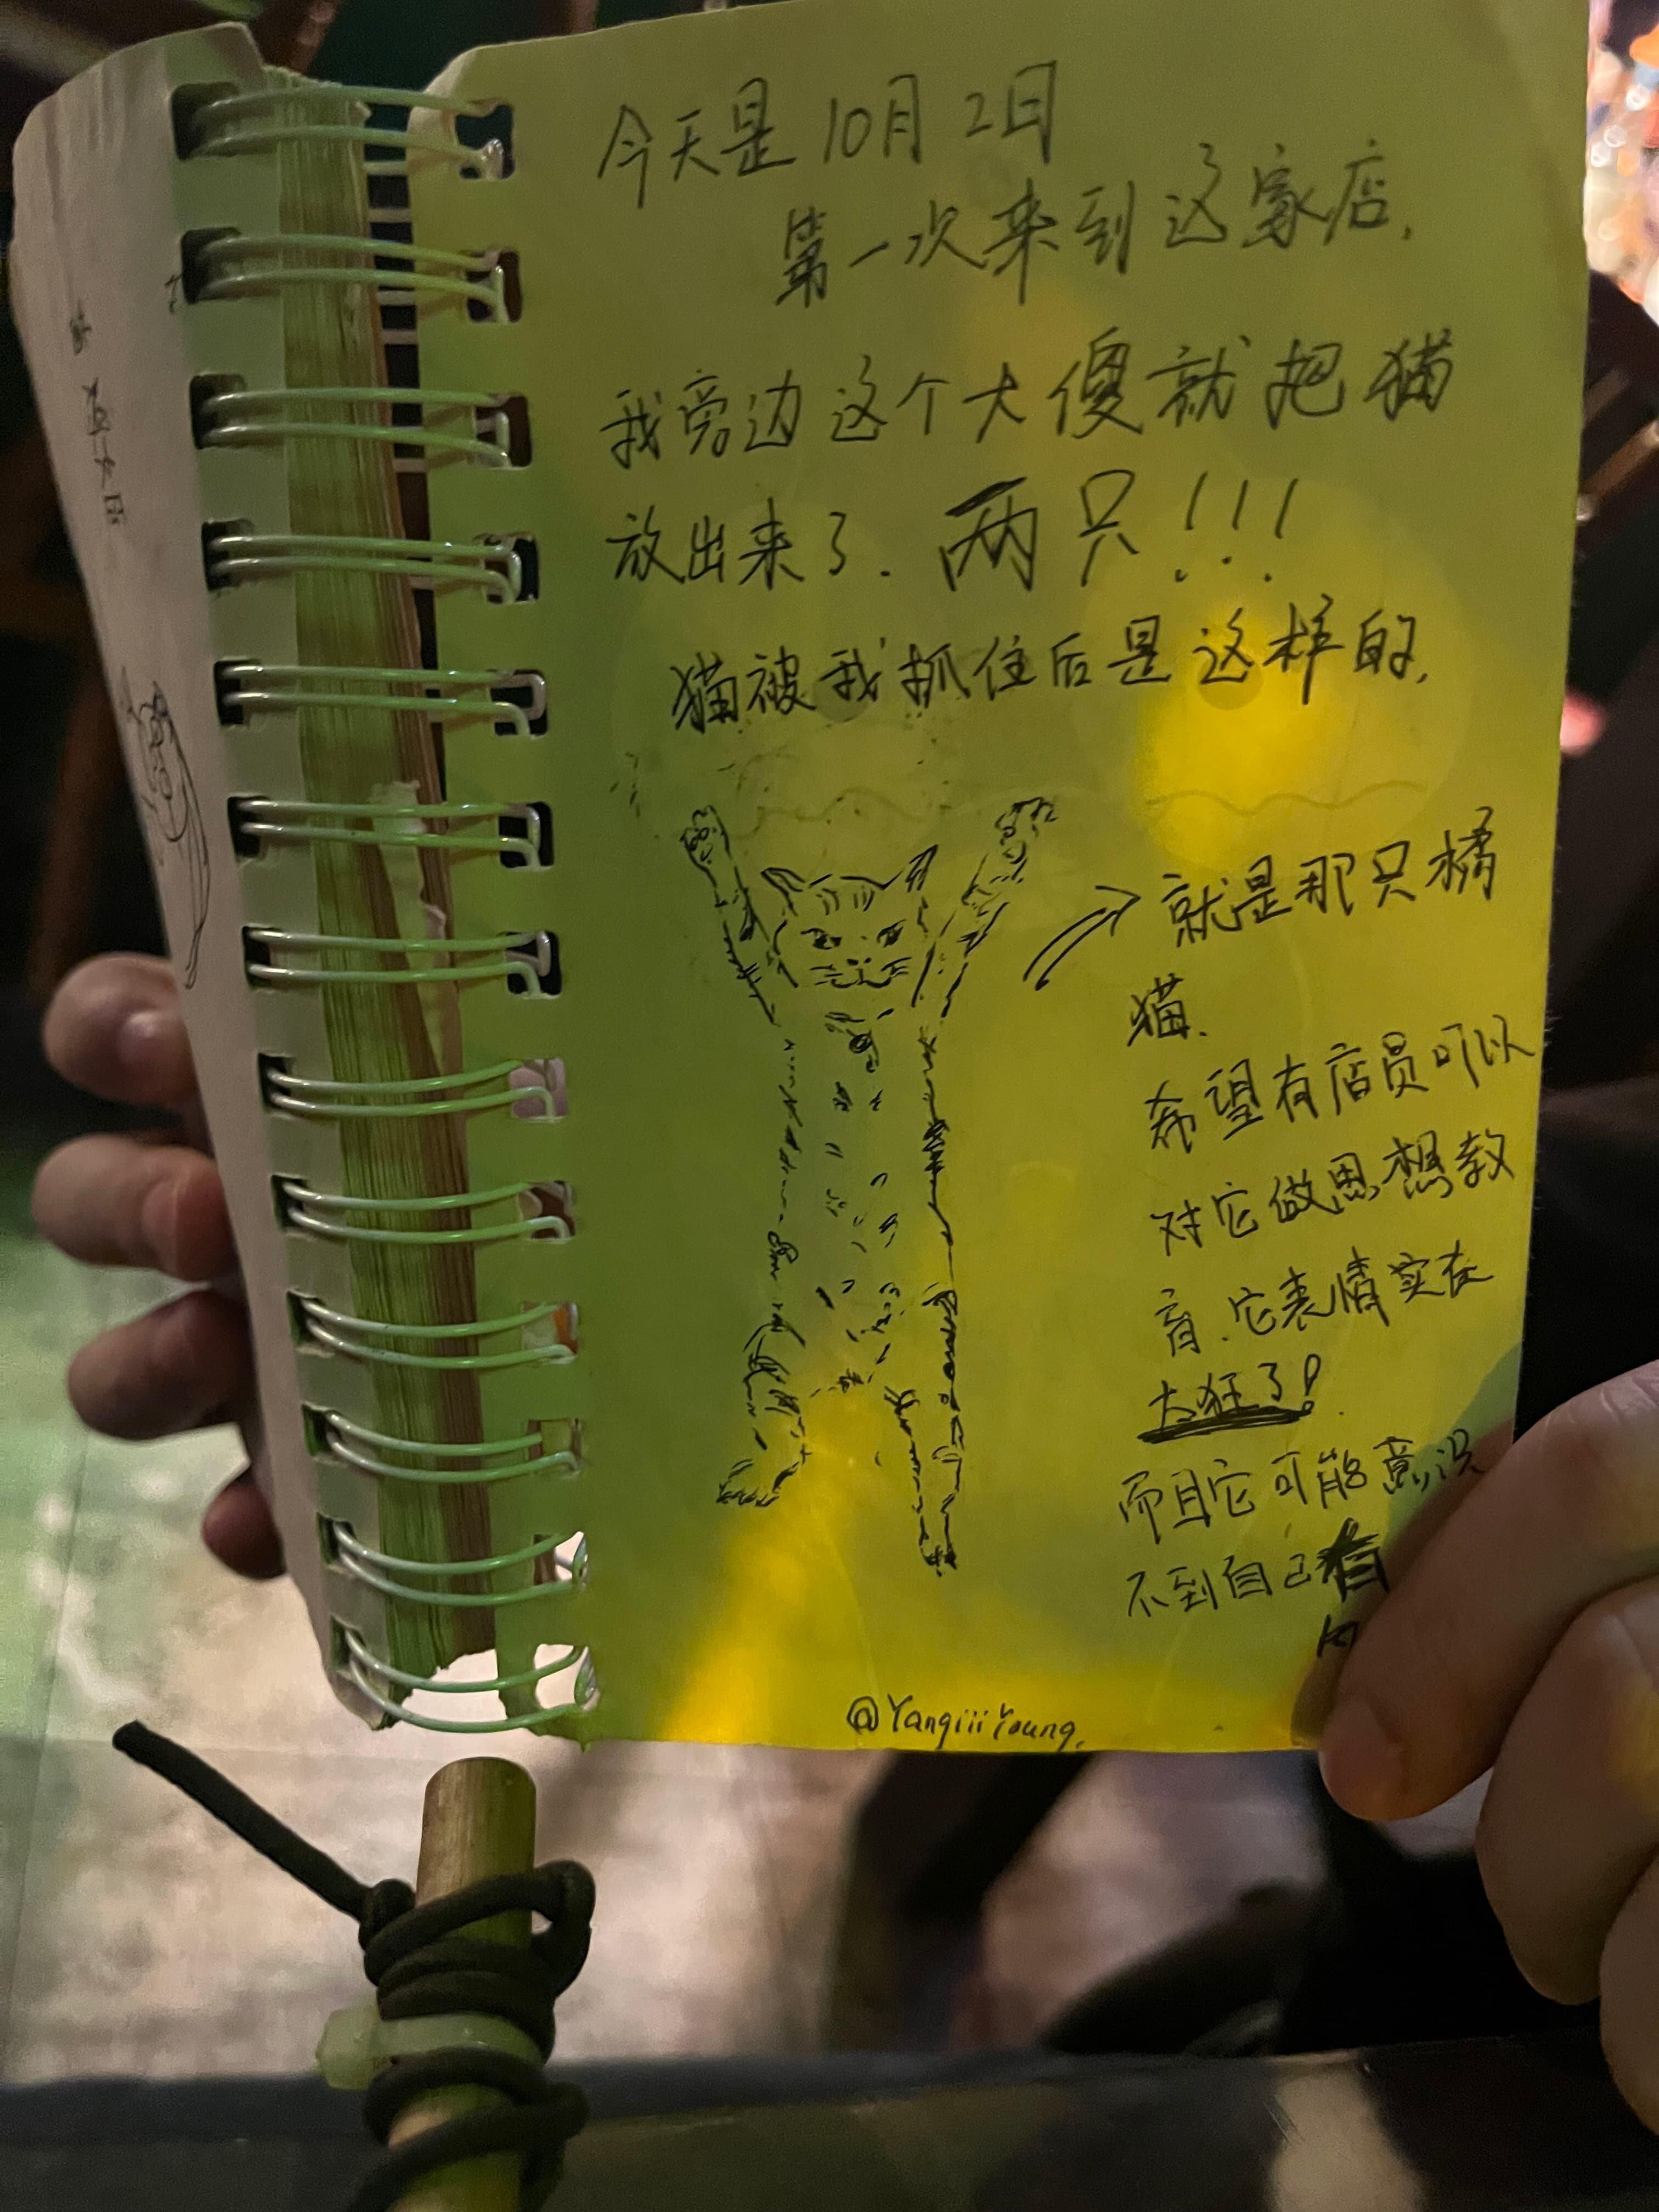 今天是10月2日
第一次来到这家店.
我旁边这个大傻就把猫
放出来了.两只!!!
猫被我抓住后是这样的,
就是那只橘
猫.
希望有店员可以
对它做思想教
育.它表情实在
太狂了!
而且它可能意识
不到自己
@YangiiiYoung.